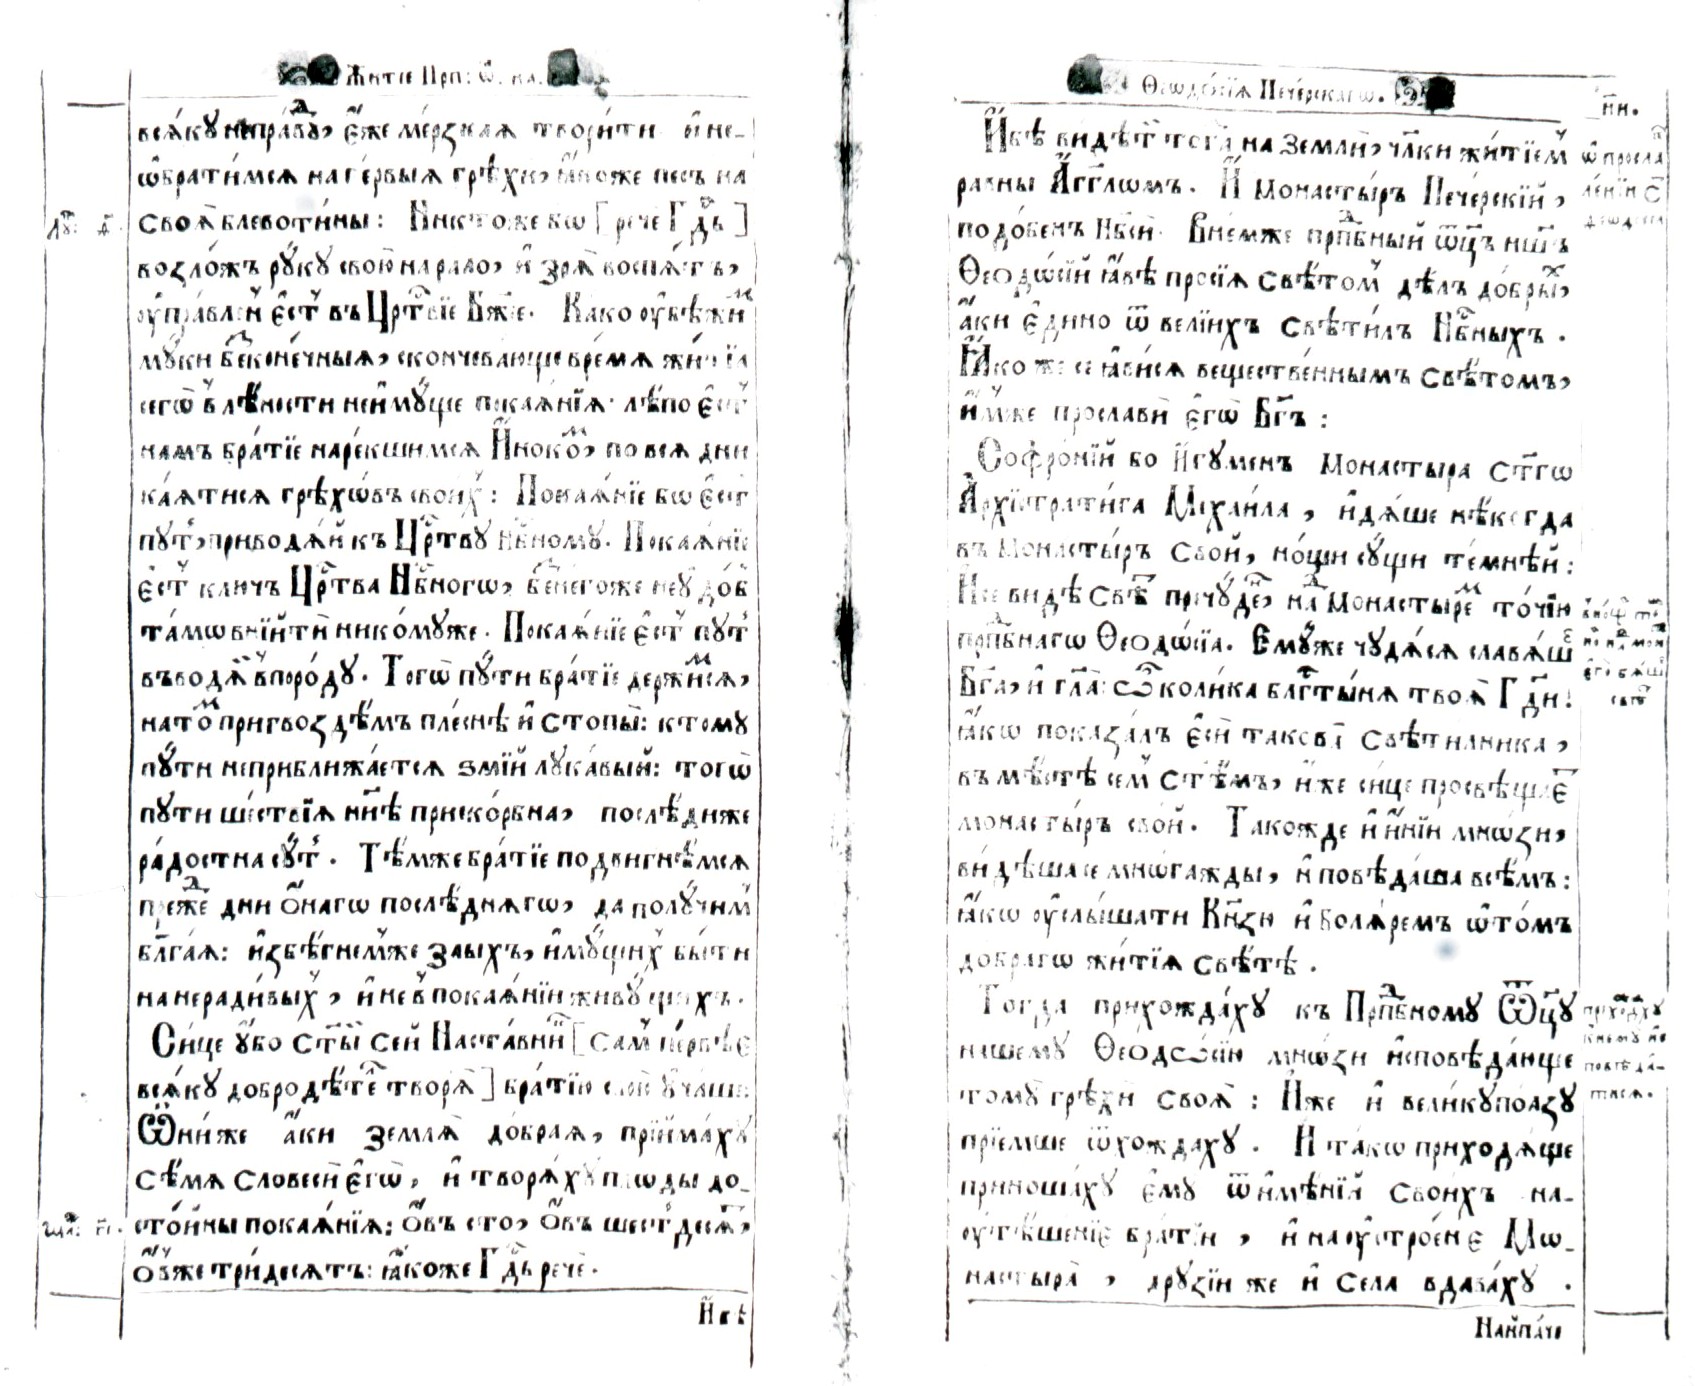 Житїе Прп: Ѿ. на.
всѧ́кꙋ непра́вдꙋ, є҆́же ме́рзкаѧ твори́ти и҆ не-
ѡ҆брати́мсѧ на пе́рвыѧ грѣхи̏, ꙗ҆́коже песъ на
своѧ̀ блевоти́ны: Никто́же бѡ [рече̏ Гдⷭ҇ь]
Лꙋⷦ: д҃.
возло́жъ рꙋ́кꙋ свою̀ на ра́ло, и҆ зрѧ̀ воспѧ́тъ,
ᲂу҆пра́вленъ є҆́стъ въ Црⷭ҇твїе Бж҃їе. Ка́ко ᲂу҆бѣжи́мъ
мꙋ́ки безконе́чныѧ, скончева́юще вре́мѧ житїѧ̀
сегѡ̀ в лѣ́ности неи҆мꙋ́ще покаѧ́нїѧ· лѣ́по є҆́стъ
намъ бра́тїе наре́кшимсѧ И҆́нокомъ, по всѧ дни
ка́ѧтисѧ грѣхѡ́въ свои́хъ: Покаѧ́нїе бѡ є҆́стъ
пꙋть, приводѧ́й къ Црⷭ҇твꙋ Нбⷭ҇номꙋ. Покаѧ́нїе
є҆́стъ ключъ Црⷭ҇тва Нбⷭ҇ногѡ, без негоже неꙋдо́бь
та́мѡ вни́йти нико́мꙋже. Покаѧ́нїе є҆́стъ пꙋть
въводѧ́й в поро́дꙋ. Тогѡ̀ пꙋти̏ бра́тїе держи́мсѧ,
на то́мъ пригвозди́мъ пле́снѣ и҆ стопы̀: к томꙋ
пꙋти̏ неприближа́етсѧ змі́й лꙋка́вый: тогѡ̀
пꙋти̏ ше́ствїѧ нн҃ѣ приско́рбна, послѣди́же
ра́достна сꙋть. Тѣ́мже бра́тїе подвигнѣ́мсѧ
пре́жде дни ѻ҆́нагѡ послѣ́днѧгѡ, да полꙋчи́мъ
бл҃га́ѧ: и҆збѣ́гнемже злыхъ, и҆мꙋ́щихъ бы́ти
на неради́выхъ, и҆ не в покаѧ́нїи живꙋ́щихъ.
Си́це ᲂу҆́бо ст҃ы́й сей Наста́вникъ [са́мъ пе́рвѣе
всѧ́кꙋ добродѣ́тель творѧ̀] бра́тїю свою̀ ᲂу҆ча́ше:
Ѻ҆ни́же а҆́ки землѧ̀ до́браѧ, прїе́маху
сѣ́мѧ словеси̏ є҆гѡ̀, и҆ творѧ́хꙋ плѡды до-
сто́йны покаѧ́нїѧ: ѻ҆́въ сто, ѻ҆́въ шестьдесѧ́тъ,
ѻ҆́вже три́десѧтъ: ꙗ҆́коже Гдⷭ҇ь рече̏.
И҆́бѣ
Ѳеѡдо́сїѧ Пече́рскагѡ.
н҃и.
И҆́бѣ ви́дѣти тогда̀ на земли̏, чл҃ки жи́тїемъ
ра́вны А҆́гг҃лѡмъ. И҆ монасты́ръ Пече́рскїй,
подо́бенъ Нб҃си̏. В не́мже прпⷣбный ѿц҃ъ нш҃ъ
Ѳеѻдѡ́сїй ꙗ҆́вѣ просїѧ̀ свѣ́томъ дѣлъ до́брыхъ,
а҆́ки є҆ди́но ѿ вели́ихъ свѣти́лъ Нбⷭ҇ныхъ.
Ꙗ҆́ко же се ꙗ҆ви́сѧ веще́ственнымъ свѣ́томъ,
и҆́мже просла́ви є҆гѡ̀ Бг҃ъ:
Софро́нїй бо И҆гꙋ́менъ монастыра̀ ст҃гѡ
А҆рхїстрати́га Міхаи́ла, и҆дѧ́ше нѣ́когда
въ монасты́ръ свой, но́щи сꙋ́щи те́мнѣй:
И се ви́дѣ свѣ́тъ пречꙋ́денъ, над монастыре́мъ то́чїю
прпⷣбнагѡ Ѳеѻдѡ́сїѧ. Є҆мꙋ́же чꙋдѧ́сѧ славѧ́ше
Бг҃а, и҆ гл҃ѧ: ѽ коли́ка бл҃гты́нѧ твоѧ̀ Гдⷭ҇и!
ꙗ҆́кѡ показа́лъ є҆си̏ такова̀ свѣти́лника,
въ мѣ́стѣ семъ ст҃ѣ́мъ, и҆́же си́це просвѣщае
монасты́ръ свой. Тако́жде и҆ и҆ні́и мнѡ́зи,
ви́дѣша се мнѡ́гажды, и҆ повѣ́даша всѣ́мъ:
ꙗ҆́кѡ ᲂу҆слы́шати Кн҃зи и҆ болѧ́ремъ ѡ҆ то́мъ
до́брагѡ жи́тїѧ свѣ́тѣ.
Тогда̀ прихожда́хꙋ къ Прпⷣбномꙋ Ѿц҃ꙋ
на́шемꙋ Ѳеѻдѡ́сїю мнѡ́зи и҆сповѣ́дающе
томꙋ̀ грѣхи̏ своѧ̀: И҆́же и҆ вели́кꙋ по́лзꙋ
прїе́мше ѿхожда́хꙋ. И та́кѡ приходѧ́ще
приноша́хꙋ є҆мꙋ̀ ѿ и҆мѣ́нїй свои́хъ на-
ᲂу҆тѣше́нїе бра́тїи, и҆ на ᲂу҆строе́нїе Мѡ-
настыра̀, дрꙋзі́и же и҆ се́ла вдава́хꙋ.
Наи҆па́че